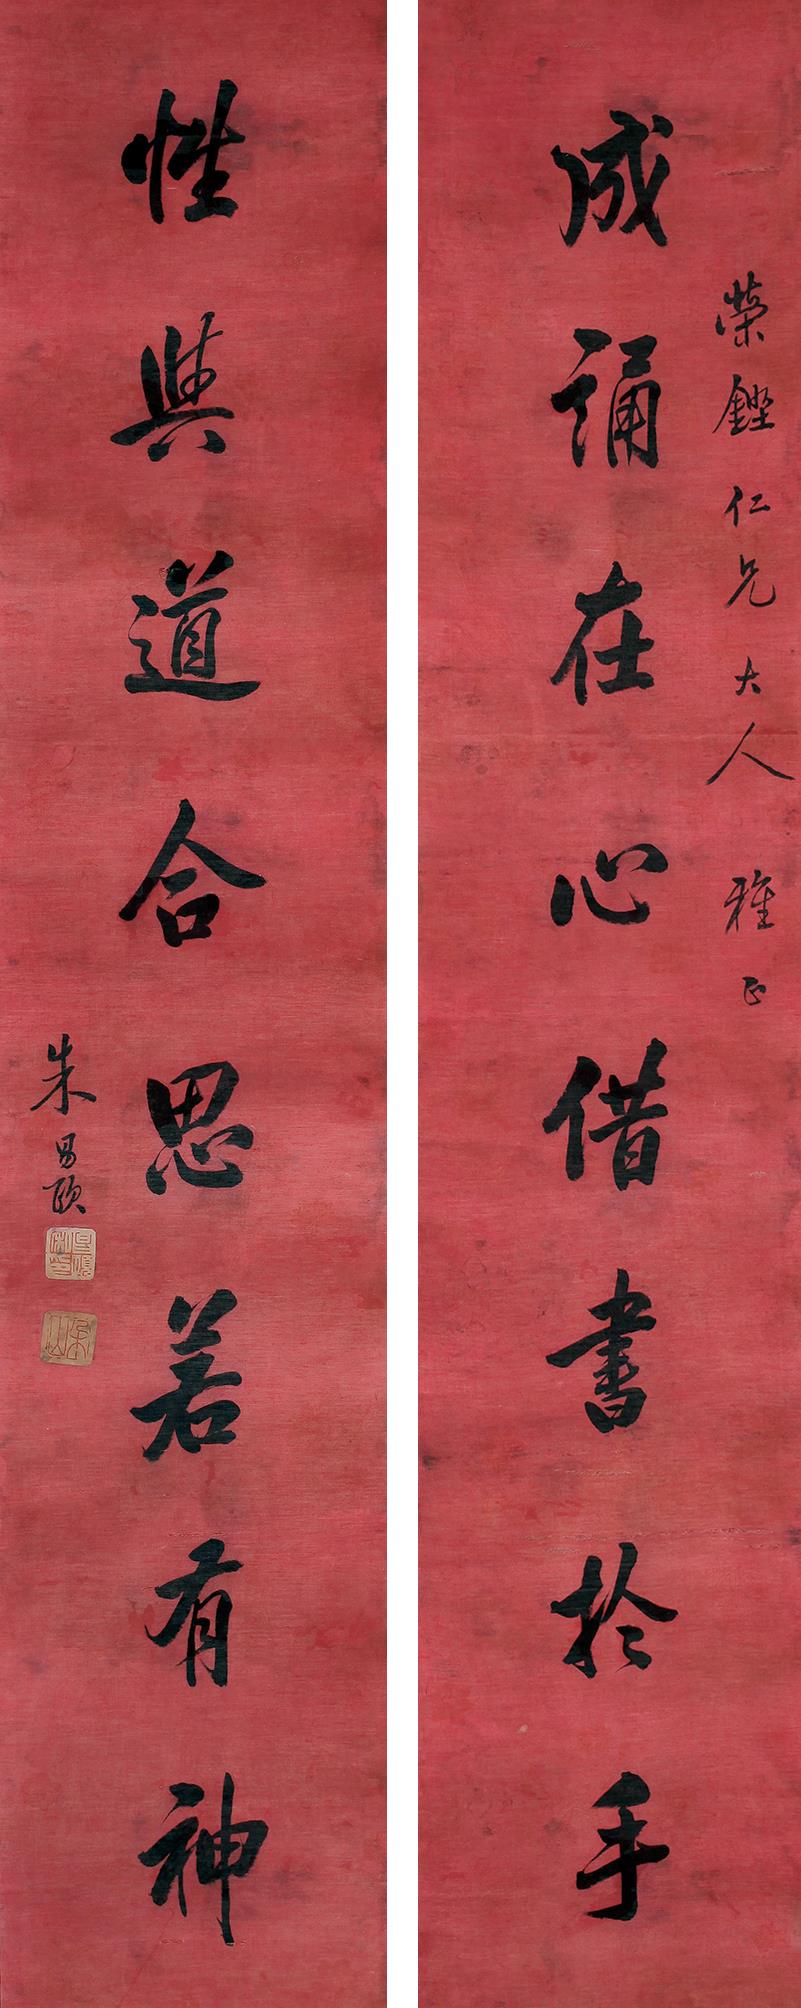 榮鏗仁兄大人 雅正
成誦在心借書於手
性與道合思若有神
朱昌頤